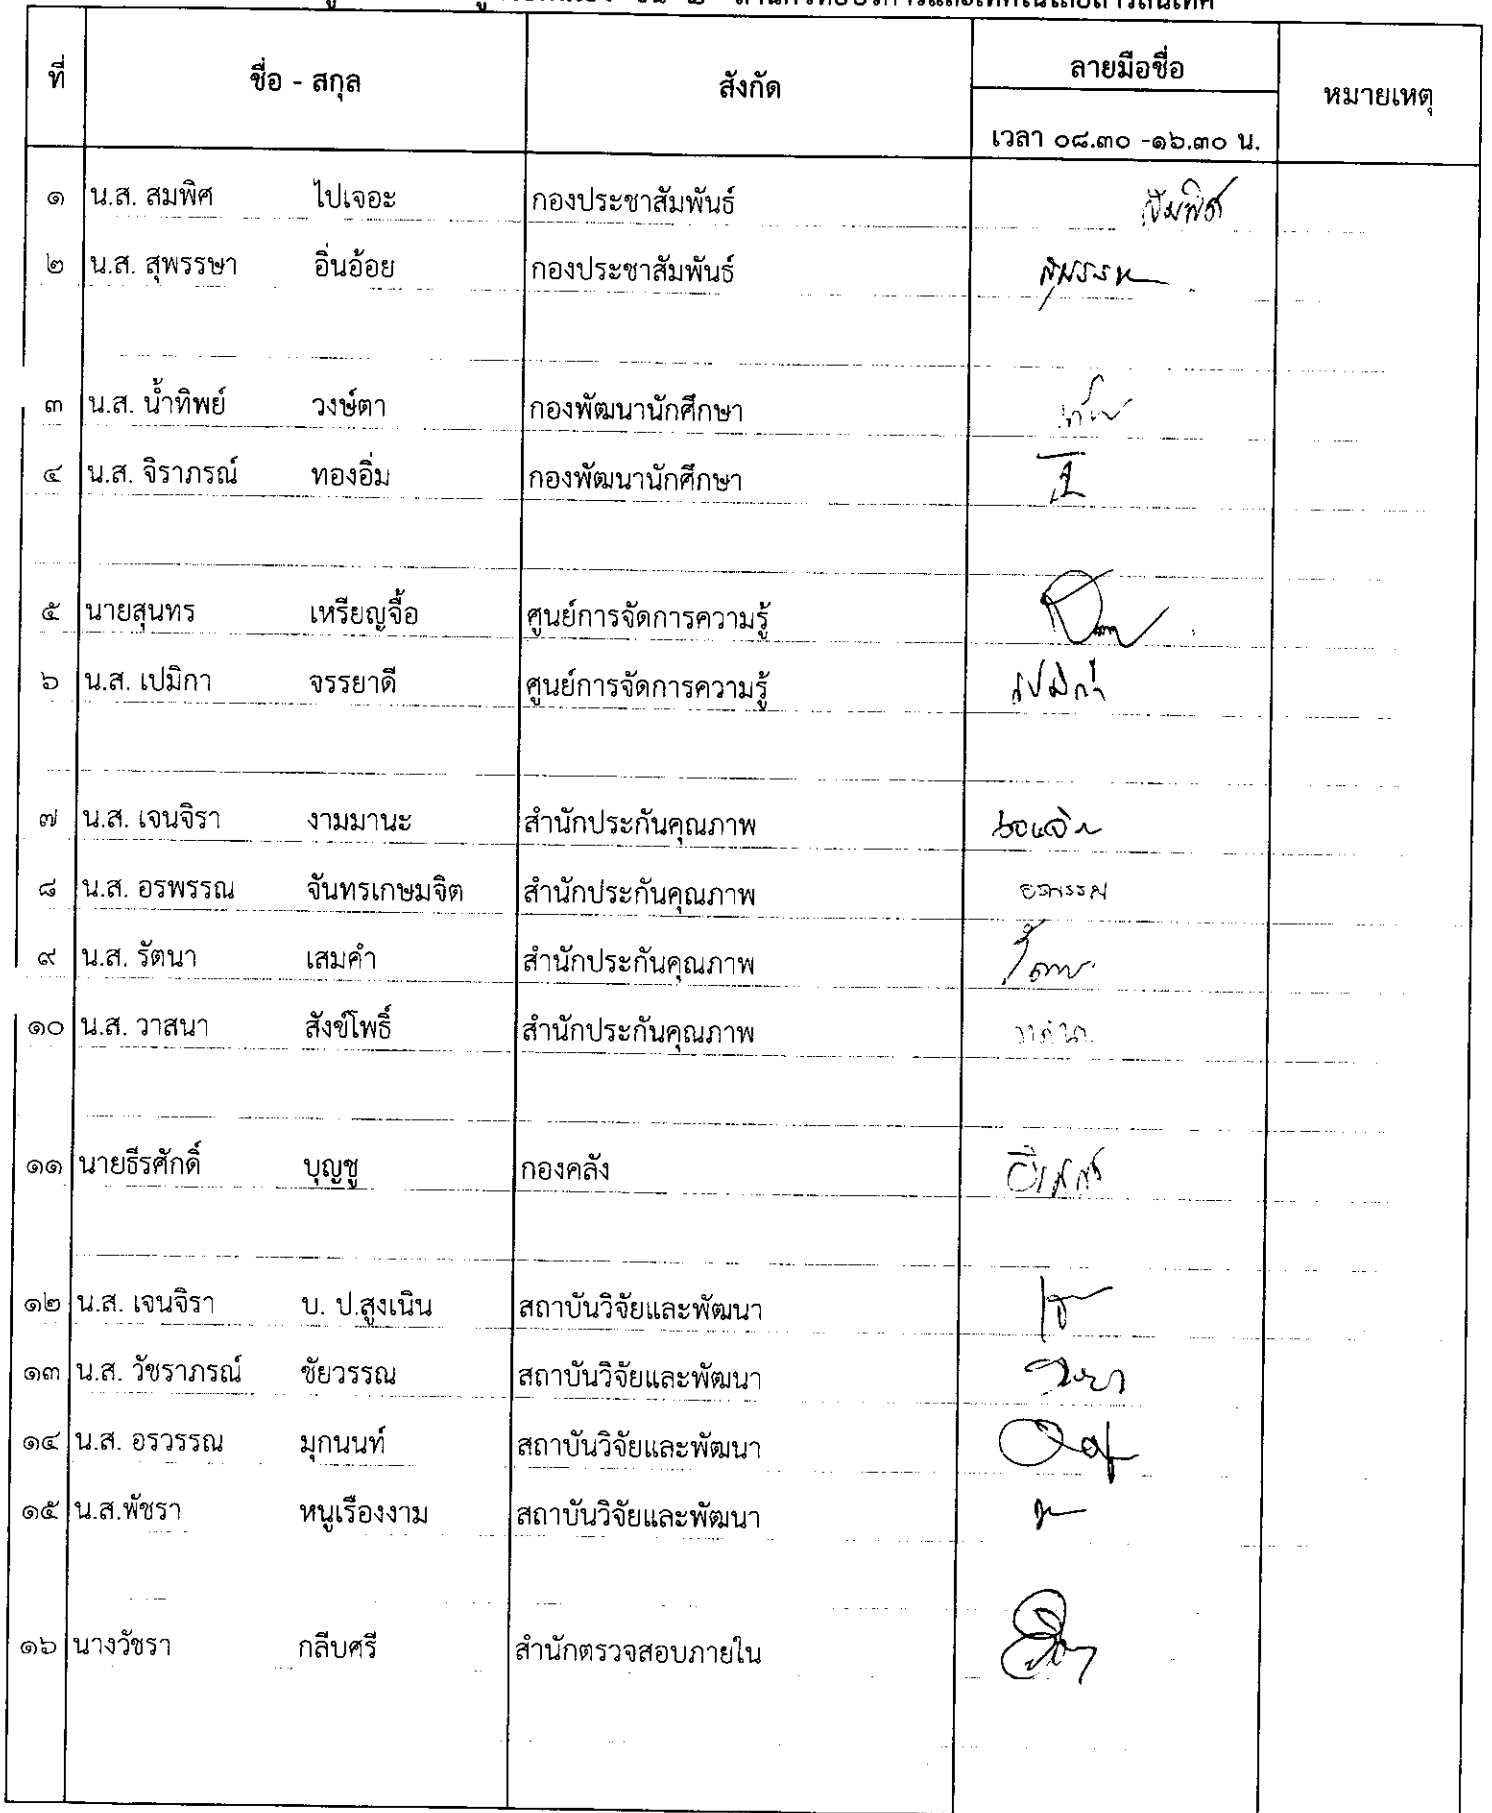 ชั้น ๒ สำนักวิทยบริการและเทคโนโลยีสารสนเทศ
ที่ ชื่อ - สกุล สังกัด ลายมือชื่อ หมายเหตุ
เวลา ๐๘.๓๐ -๑๖.๓๐ น.
๑ น.ส. สมพิศ ไปเจอะ กองประชาสัมพันธ์ สมพิศ
๒ น.ส. สุพรรษา อิ่นอ้อย กองประชาสัมพันธ์
๓ น.ส. น้ำทิพย์ วงษ์ตา กองพัฒนานักศึกษา
๔ น.ส. จิราภรณ์ ทองอิ่ม กองพัฒนานักศึกษา
๕ นายสุนทร เหรียญจื้อ ศูนย์การจัดการความรู้
๖ น.ส. เปมิกา จรรยาดี ศูนย์การจัดการความรู้ เปมิกา
๗ น.ส. เจนจิรา งามมานะ สำนักประกันคุณภาพ
๘ น.ส. อรพรรณ จันทรเกษมจิต สำนักประกันคุณภาพ อรพรรณ
๙ น.ส. รัตนา เสมคำ สำนักประกันคุณภาพ
๑๐ น.ส. วาสนา สังข์โพธิ์ สำนักประกันคุณภาพ วาสนา
๑๑ นายธีรศักดิ์ บุญชู กองคลัง
๑๒ น.ส. เจนจิรา บ. ป.สูงเนิน สถาบันวิจัยและพัฒนา
๑๓ น.ส. วัชราภรณ์ ชัยวรรณ สถาบันวิจัยและพัฒนา
๑๔ น.ส. อรวรรณ มุกนนท์ สถาบันวิจัยและพัฒนา
๑๕ น.ส.พัชรา หนูเรืองงาม สถาบันวิจัยและพัฒนา
๑๖ นางวัชรา กลีบศรี สำนักตรวจสอบภายใน